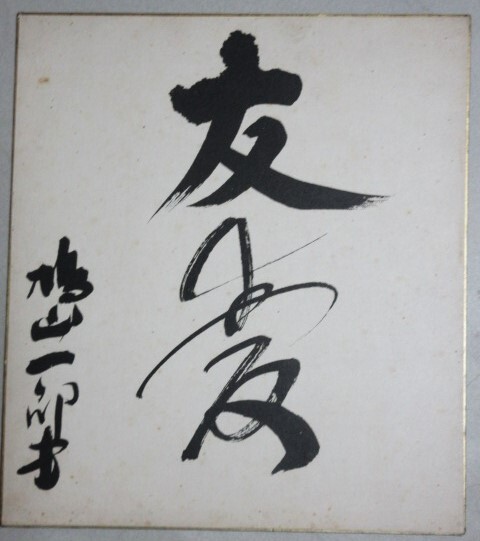 友愛
鳩山一郎書